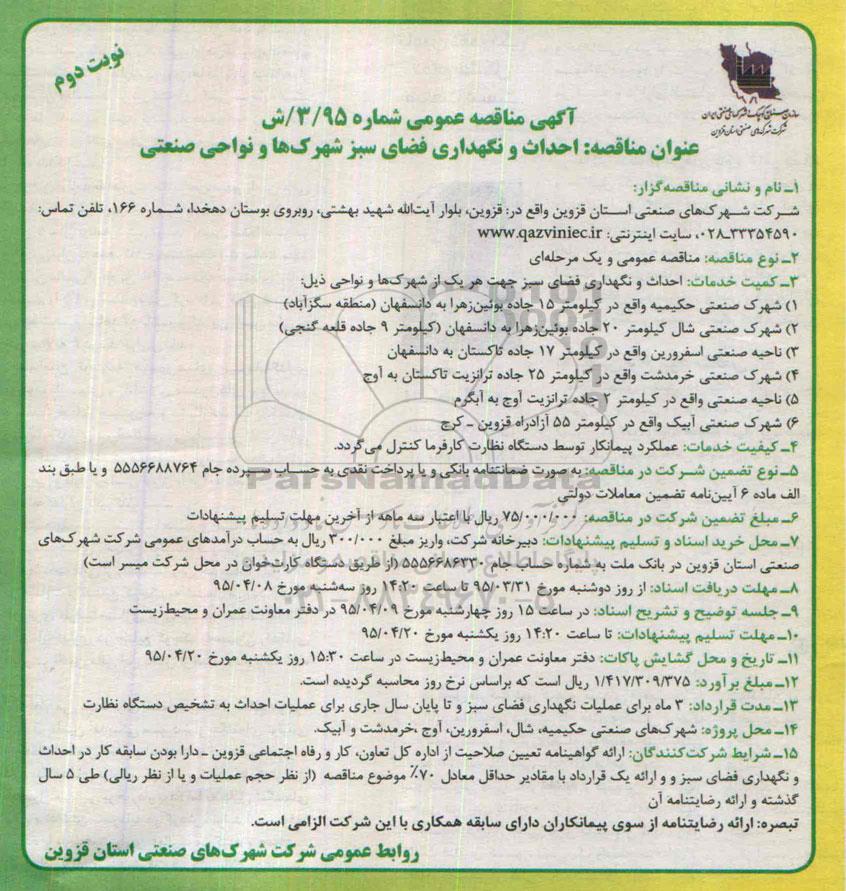 نوبت دوم
سازمان صنایع کوچک و شهرکهای صنعتی ایران
شرکت شهرکهای صنعتی استان قزوین
آگهی مناقصه عمومی شماره ۳/۹۵/ش
عنوان مناقصه: احداث و نگهداری فضای سبز شهرک‌ها و نواحی صنعتی
۱ـ نام و نشانی مناقصه‌گزار:
شرکت شهرک‌های صنعتی استان قزوین واقع در: قزوین، بلوار آیت‌الله شهید بهشتی، روبروی بوستان دهخدا، شماره ۱۶۶، تلفن تماس:
۰۲۸ـ۳۳۳۵۴۵۹۰، سایت اینترنتی: www.qazviniec.ir
۲ـ نوع مناقصه: مناقصه عمومی و یک مرحله‌ای
۳ـ کمیت خدمات: احداث و نگهداری فضای سبز جهت هر یک از شهرک‌ها و نواحی ذیل:
۱) شهرک صنعتی حکیمیه واقع در کیلومتر ۱۵ جاده بوئین‌زهرا به دانسفهان (منطقه سگزآباد)
۲) شهرک صنعتی شال کیلومتر ۲۰ جاده بوئین‌زهرا به دانسفهان (کیلومتر ۹ جاده قلعه گنجی)
۳) ناحیه صنعتی اسفرورین واقع در کیلومتر ۱۷ جاده تاکستان به دانسفهان
۴) شهرک صنعتی خرمدشت واقع در کیلومتر ۲۵ جاده ترانزیت تاکستان به آوج
۵) ناحیه صنعتی واقع در کیلومتر ۲ جاده ترانزیت آوج به آبگرم
۶) شهرک صنعتی آبیک واقع در کیلومتر ۵۵ آزادراه قزوین ـ کرج
۴ـ کیفیت خدمات: عملکرد پیمانکار توسط دستگاه نظارت کارفرما کنترل می‌گردد.
۵ـ نوع تضمین شرکت در مناقصه: به صورت ضمانتنامه بانکی و یا پرداخت نقدی به حساب سپرده جام ۵۵۵۶۶۸۸۷۶۴ و یا طبق بند
الف ماده ۶ آیین‌نامه تضمین معاملات دولتی
ParsNamadData
۶ـ مبلغ تضمین شرکت در مناقصه: ۷۵/۰۰۰/۰۰۰ ریال با اعتبار سه ماهه از آخرین مهلت تسلیم پیشنهادات
۷ـ محل خرید اسناد و تسلیم پیشنهادات: دبیرخانه شرکت، واریز مبلغ ۳۰۰/۰۰۰ ریال به حساب درآمدهای عمومی شرکت شهرک‌های
صنعتی استان قزوین در بانک ملت به شماره حساب جام (از طریق دستگاه کارت‌خوان در محل شرکت میسر است)
۸ـ مهلت دریافت اسناد: از روز دوشنبه مورخ ۹۵/۰۳/۳۱ تا ساعت ۱۴:۲۰ روز سه‌شنبه مورخ ۹۵/۰۴/۰۸
۹ـ جلسه توضیح و تشریح اسناد: در ساعت ۱۵ روز چهارشنبه مورخ ۹۵/۰۴/۰۹ در دفتر معاونت عمران و محیط‌زیست
۱۰ـ مهلت تسلیم پیشنهادات: تا ساعت ۱۴:۲۰ روز یکشنبه مورخ ۹۵/۰۴/۲۰
۱۱ـ تاریخ و محل گشایش پاکات: دفتر معاونت عمران و محیط‌زیست در ساعت ۱۵:۳۰ روز یکشنبه مورخ ۹۵/۰۴/۲۰
۱۲ـ مبلغ برآورد: ۱/۴۱۷/۳۰۹/۳۷۵ ریال است که براساس نرخ روز محاسبه گردیده است.
۱۳ـ مدت قرارداد: ۳ ماه برای عملیات نگهداری فضای سبز و تا پایان سال جاری برای عملیات احداث به تشخیص دستگاه نظارت
۱۴ـ محل پروژه: شهرک‌های صنعتی حکیمیه، شال، اسفرورین، آوج ،خرمدشت و آبیک.
۱۵ـ شرایط شرکت‌کنندگان: ارائه گواهینامه تعیین صلاحیت از اداره کل تعاون، کار و رفاه اجتماعی قزوین ـ دارا بودن سابقه کار در احداث
و نگهداری فضای سبز و و ارائه یک قرارداد با مقادیر حداقل معادل ۷۰٪ موضوع مناقصه (از نظر حجم عملیات و یا از نظر ریالی) طی ۵ سال
گذشته و ارائه رضایتنامه آن
تبصره: ارائه رضایتنامه از سوی پیمانکاران دارای سابقه همکاری با این شرکت الزامی است.
روابط عمومی شرکت شهرک‌های صنعتی استان قزوین